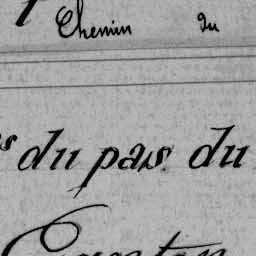 Chemin du
du pais du